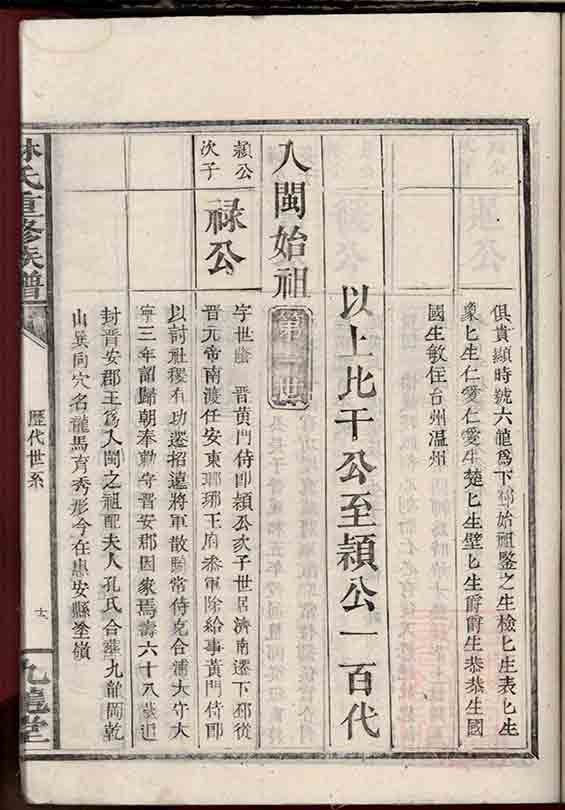 俱貴顯時號六龍爲下邳始祖鑒之生檢匕生表匕生
衆匕生仁愛仁愛生楚匕生璧匕生爵爵生恭恭生國
國生敏住台州温州
以上比干公至穎公一百代
入閩始祖 第一世
穎公
次子
祿公
字世蔭 晋黄門侍郎穎公次子世居濟南遷下邳從
晋元帝南渡任安東瑯琊王府叅軍除給事黄門侍郎
以討社稷有功遷招遠將軍散騎常侍合浦太守太
寧三年詔歸朝奉勅守晋安郡因家焉壽六十八歲追
封晋安郡王爲入閩之祖配夫人孔氏合塟九龍岡乾
山巽向穴名龍馬育秀形今在惠安縣塗嶺
林氏重修族譜
歷代世系
九龍堂